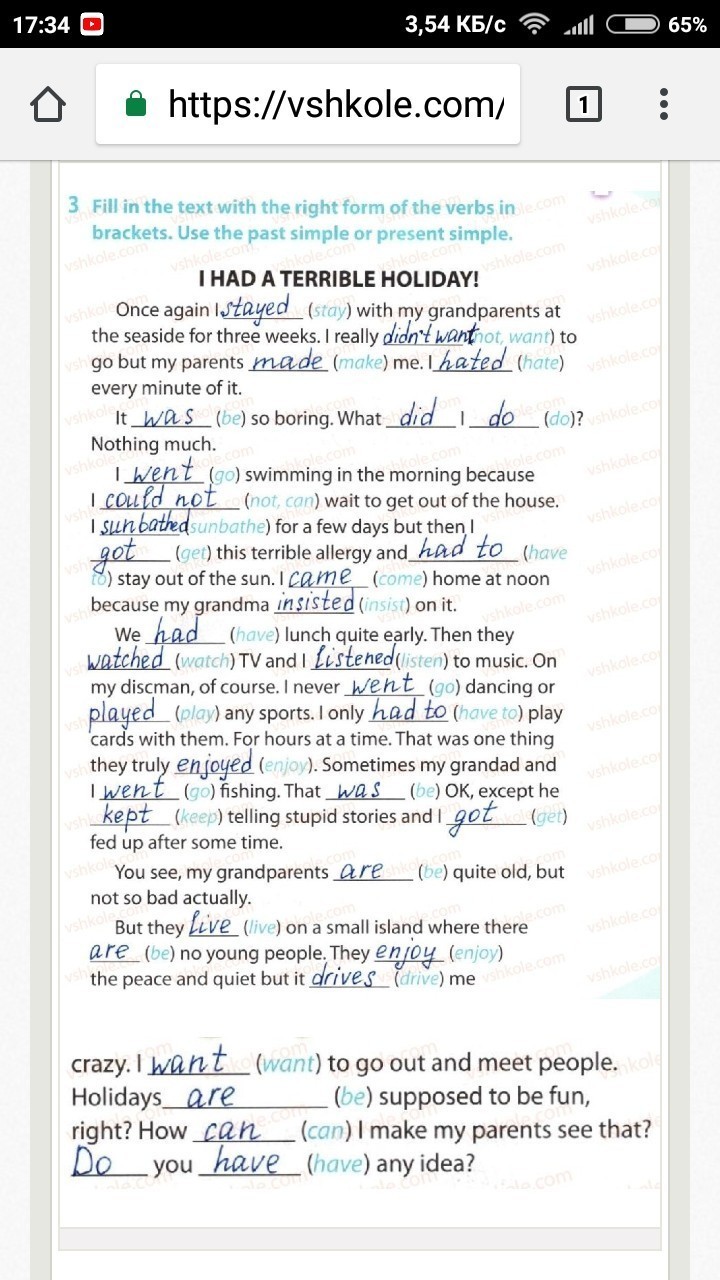 17:34 3,54 КБ/с 65%
https://vshkole.com/ 1
3 Fill in the text with the right form of the verbs in
brackets. Use the past simple or present simple.
I HAD A TERRIBLE HOLIDAY!
Once again I stayed (stay) with my grandparents at
the seaside for three weeks. I really didn't want not, want) to
go but my parents made (make) me. I hated (hate)
every minute of it.
It was (be) so boring. What did I do (do)?
Nothing much.
I went (go) swimming in the morning because
I could not (not, can) wait to get out of the house.
I sunbathed sunbathe) for a few days but then I
got (get) this terrible allergy and had to (have
to) stay out of the sun. I came (come) home at noon
because my grandma insisted (insist) on it.
We had (have) lunch quite early. Then they
watched (watch) TV and I listened (listen) to music. On
my discman, of course. I never went (go) dancing or
played (play) any sports. I only had to (have to) play
cards with them. For hours at a time. That was one thing
they truly enjoyed (enjoy). Sometimes my grandad and
I went (go) fishing. That was (be) OK, except he
kept (keep) telling stupid stories and I got (get)
fed up after some time.
You see, my grandparents are (be) quite old, but
not so bad actually.
But they live (live) on a small island where there
are (be) no young people. They enjoy (enjoy)
the peace and quiet but it drives (drive) me
crazy. I want (want) to go out and meet people.
Holidays are (be) supposed to be fun,
right? How can (can) I make my parents see that?
Do you have (have) any idea?